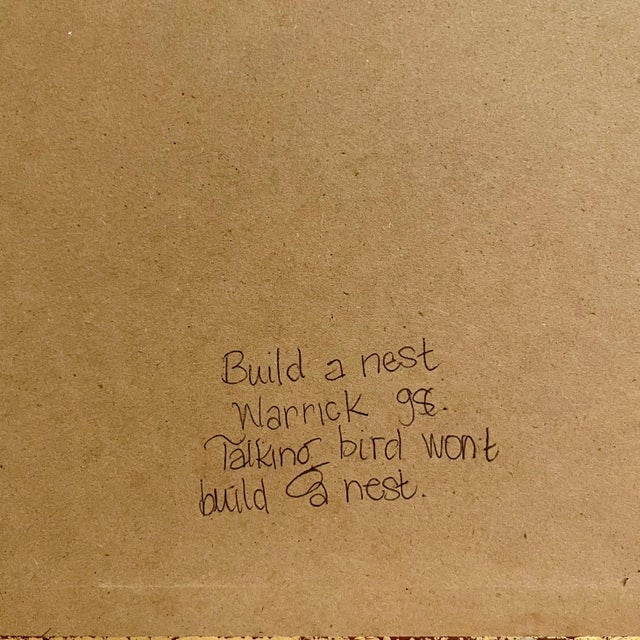 Build a nest
Warrick 98.
Talking bird won't
build a nest.